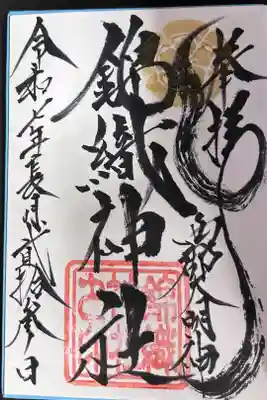 奉拝
大明神
錦織神社
令和七年長月弐拾参日